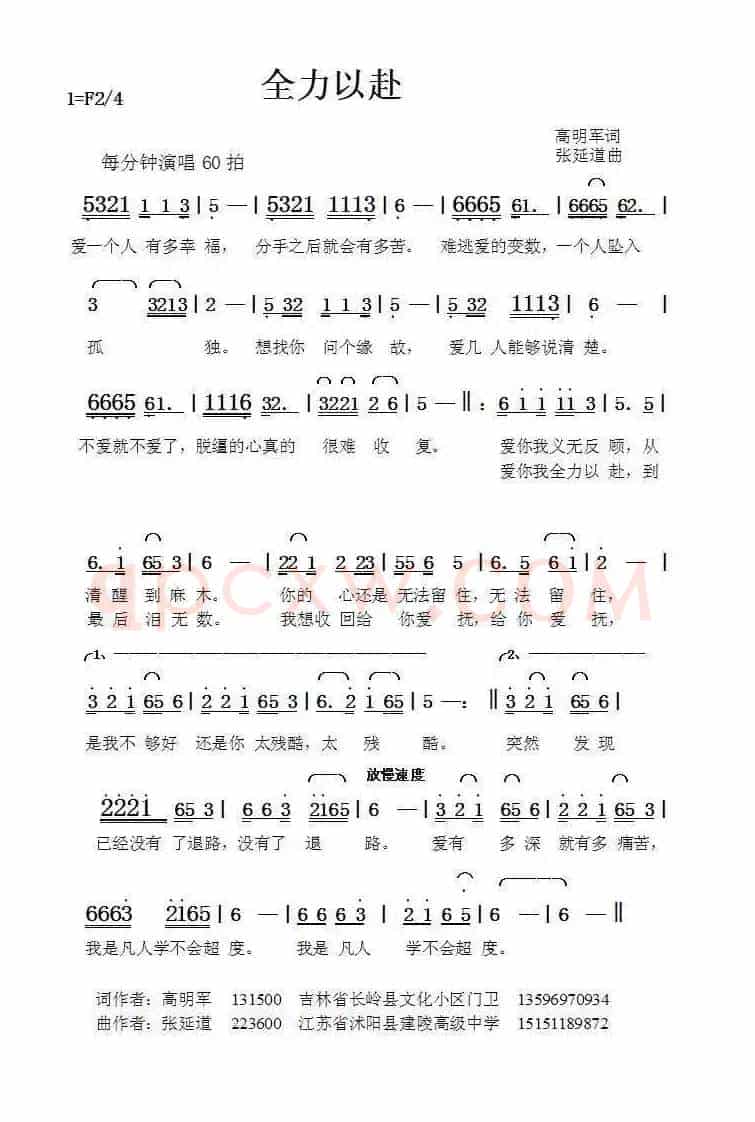 全力以赴
1=F2/4
高明军词
每分钟演唱 60 拍
张延道曲
5321 1 1 3 | 5 — | 5321 1113 | 6 — | 6665 61. | 6665 62. |
爱一个人 有多幸 福， 分手之后就会有多苦。 难逃爱的变数，一个人坠入
3 3213 | 2 — | 5 32 1 1 3 | 5 — | 5 32 1113 | 6 — |
孤 独。 想找你 问个缘 故， 爱几 人能够说清 楚。
6665 61. | 1116 32. | 3221 2 6 | 5 — ‖ : 6 1 1 11 3 | 5. 5 |
不爱就不爱了，脱缰的心真的 很难 收 复。 爱你我义无反 顾，从
爱你我全力以 赴，到
6. 1 65 3 | 6 — | 22 1 2 23 | 55 6 5 | 6. 5 6 1 | 2 — |
清 醒 到 麻 木。 你的 心还是 无法留 住，无 法 留 住，
最 后 泪 无 数。 我想收 回给 你爱 抚，给 你 爱 抚，
1、 2、
3 2 1 65 6 | 2 2 1 65 3 | 6. 2 1 65 | 5 — : ‖ 3 2 1 65 6 |
是我不 够好 还是你 太残酷，太 残 酷。 突然 发 现
放慢速度
2221 65 3 | 6 6 3 2165 | 6 — | 3 2 1 65 6 | 2 2 1 65 3 |
已经没有 了退路，没有了 退 路。 爱有 多 深 就有多 痛苦，
6663 2165 | 6 — | 6 6 6 3 | 2 1 6 5 | 6 — | 6 — ‖
我是凡人学不会超 度。 我是 凡人 学不会超 度。
词作者：高明军 131500 吉林省长岭县文化小区门卫 13596970934
曲作者：张延道 223600 江苏省沭阳县建陵高级中学 15151189872
qpcxw.COM